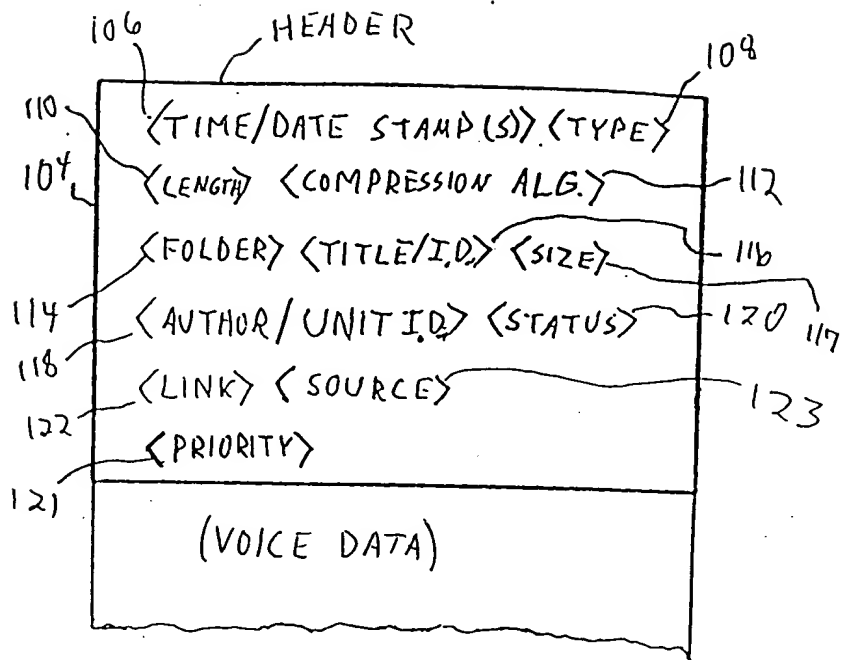 106 HEADER 108
<TIME/DATE STAMP(S)> <TYPE>
110
104 <LENGTH> <COMPRESSION ALG.> 112
<FOLDER> <TITLE/I.D.> <SIZE> 116
114 <AUTHOR/UNIT I.D.> <STATUS> 120 117
118
<LINK> <SOURCE> 123
122
<PRIORITY>
121
(VOICE DATA)